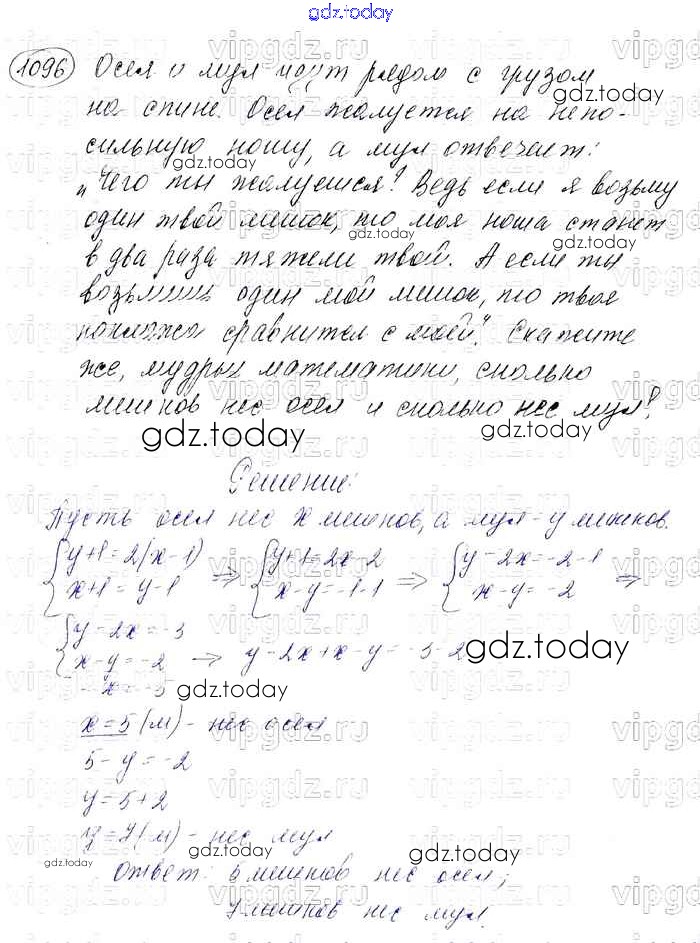 gdz.today
1096 Осел и мул идут рядом с грузом
на спине. Осел жалуется на непо-
сильную ношу, а мул отвечает:
„Чего ты жалуешся? Ведь если я возьму
один твой мешок, то моя ноша станет
в два раза тяжели твой. А если ты
возьмешь один мой мешок, то твоя
поклажа сравнится с моей". Скажите
же, мудрые математики, сколько
мешков нес осел и сколько нес мул?
gdz.today gdz.today
Решение:
Пусть осел нес x мешков, а мул - y мешков.
{y+1=2(x-1) => {y+1=2x-2 => {y-2x=-2-1 =>
{x+1=y-1 {x-y=-1-1 {x-y=-2
{y-2x=-3
{x-y=-2 -> y-2x+x-y=-3-2 gdz.today
-x=-5 gdz.today
x=5(м) - нес осел
5-y=-2
y=5+2
y=7(м) - нес мул
gdz.today gdz.today
Ответ: 5 мешков нес осел;
7 мешков нес мул.